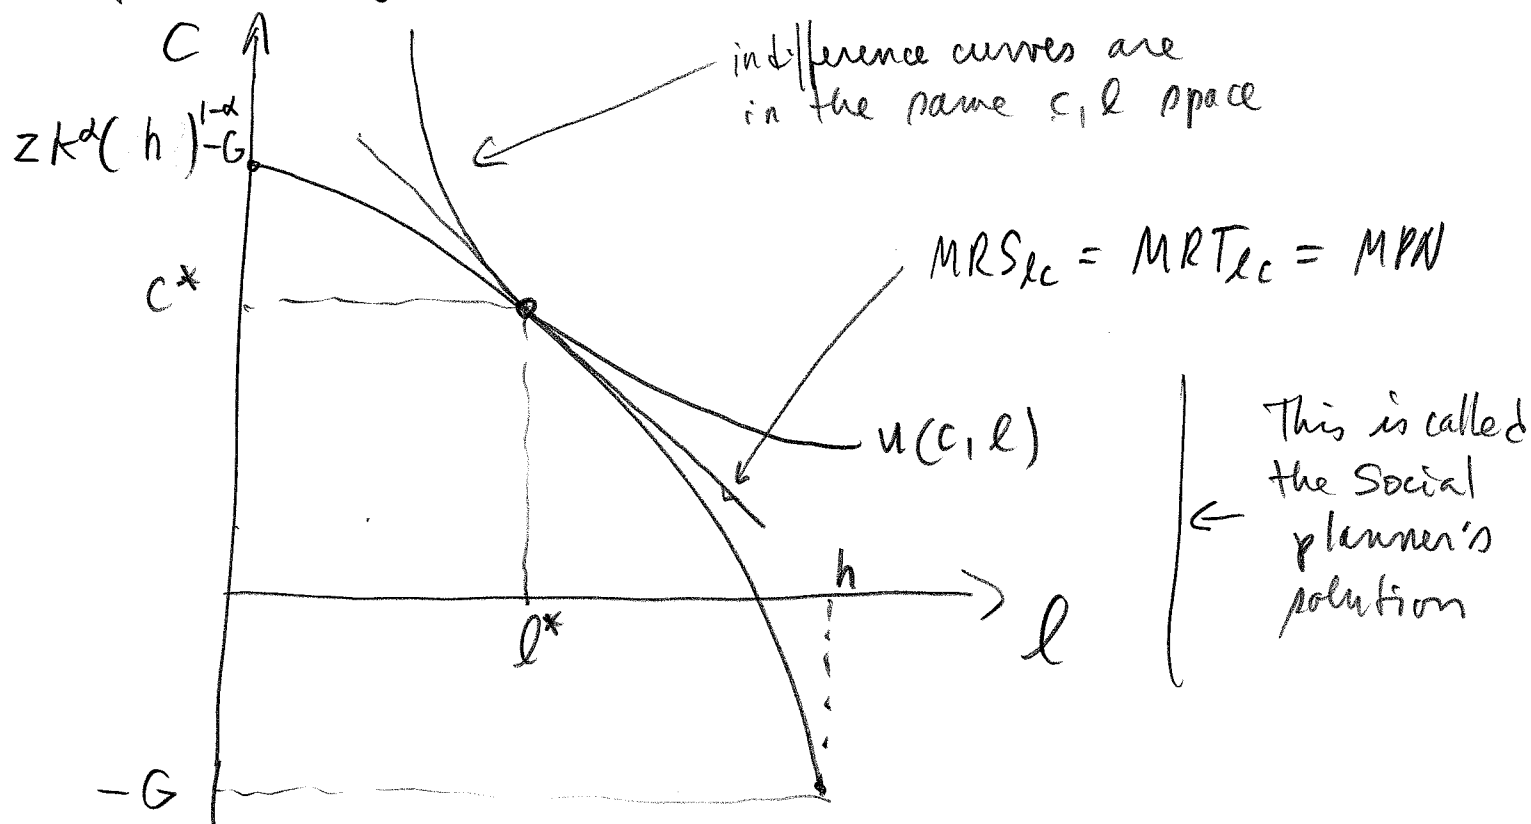 C
indifference curves are
in the same c, l space
zk^α(h)^{1-α}-G
MRS_{lc} = MRT_{lc} = MPN
C*
u(c, l)
This is called
the social
planner's
solution
h
l*
l
-G